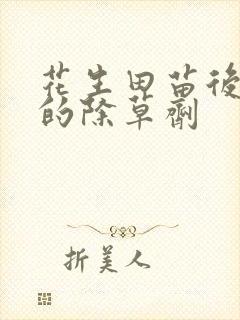 花生田苗後
的除草劑
折美人